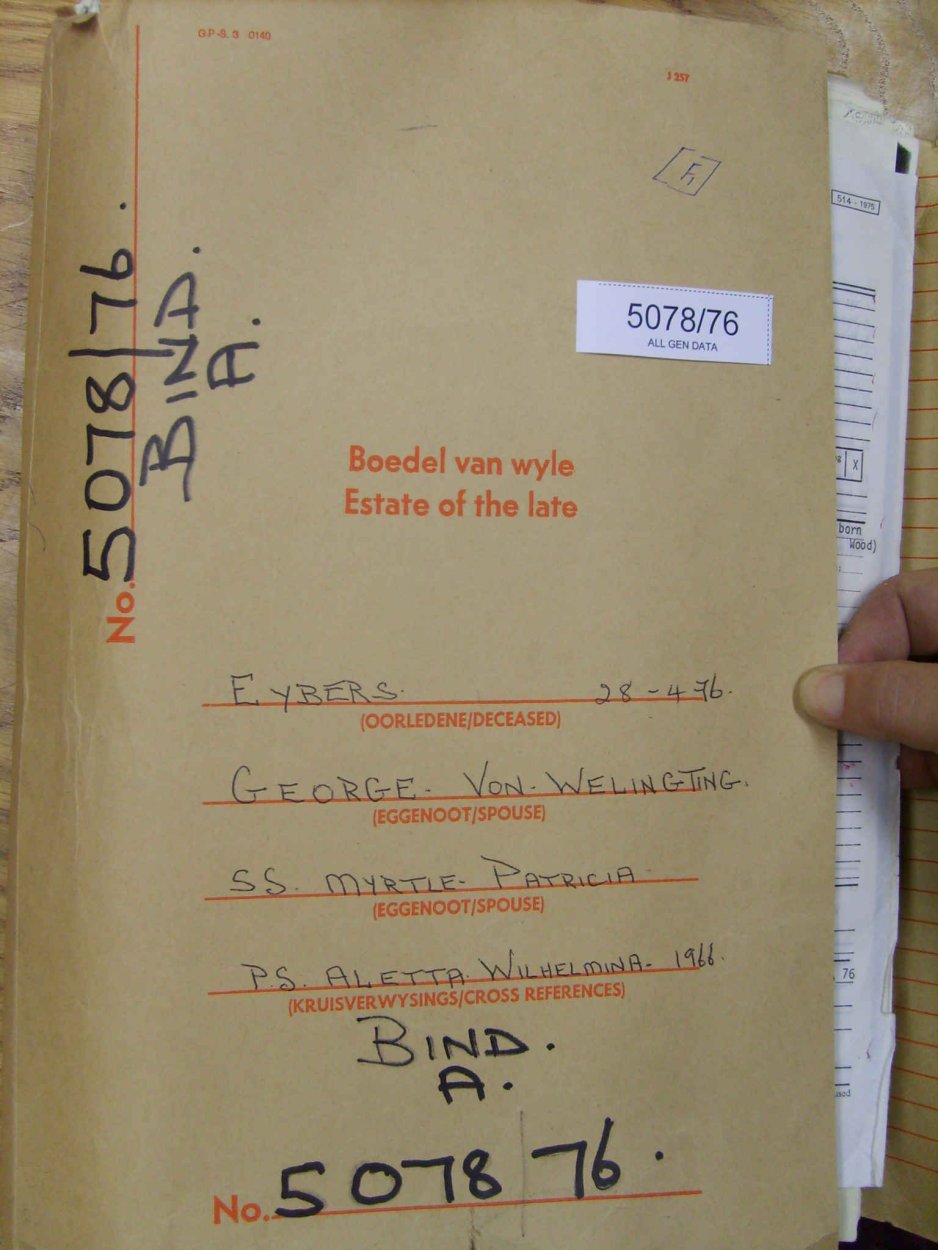 G.P.-S. 3 0140
J 257
F1
514 - 1975
No. 5078/76.
BIND.
A.
5078/76
ALL GEN DATA
Boedel van wyle
Estate of the late
X
born
Wood)
EYBERS. 28-4-76.
(OORLEDENE/DECEASED)
GEORGE. VON. WELINGTING.
(EGGENOOT/SPOUSE)
SS. MYRTLE. PATRICIA
(EGGENOOT/SPOUSE)
P.S. ALETTA. WILHELMINA- 1966.
(KRUISVERWYSINGS/CROSS REFERENCES)
76
BIND.
A.
No. 5078 76.